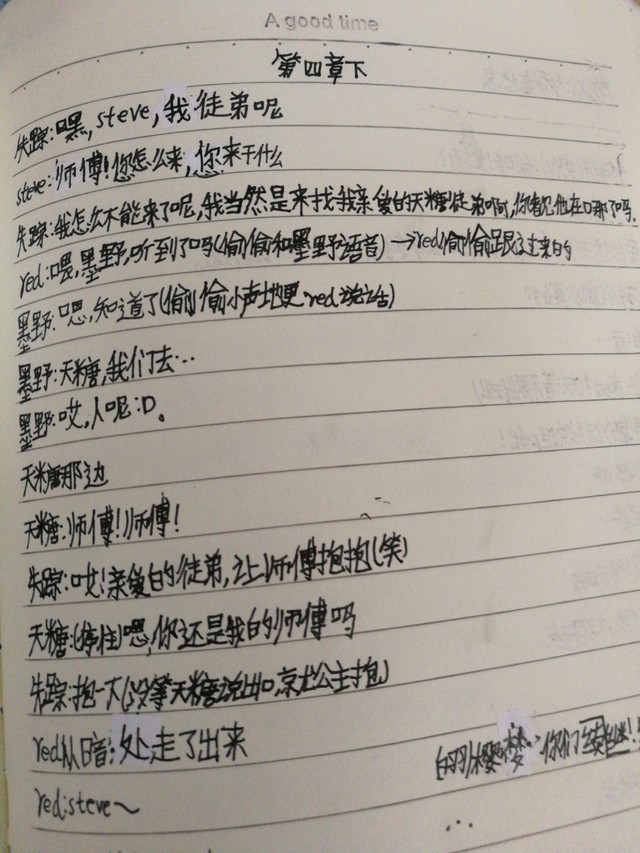 A good time
第四章下
失踪:嘿,steve,我徒弟呢
steve:师傅!您怎么来,你来干什么
失踪:我怎么不能来了呢,我当然是来找我亲爱的天糖徒弟啊,你看见他在哪了吗.
red:喂,墨野,听到了吗(偷偷和墨野语音)→red偷偷跟过来的
墨野:嗯,知道了(偷偷小声地更red说话)
墨野:天糖,我们去…
墨野:哎,人呢:D。
天糖那边
天糖:师傅!师傅!
失踪:哎!亲爱的徒弟,让师傅抱抱(笑)
天糖:(停住)嗯,你还是我的师傅吗
失踪:抱一下(没等天糖说出口,就公主抱)
red从暗处走了出来
白羽樱梦:你们继继!
red:steve~
...